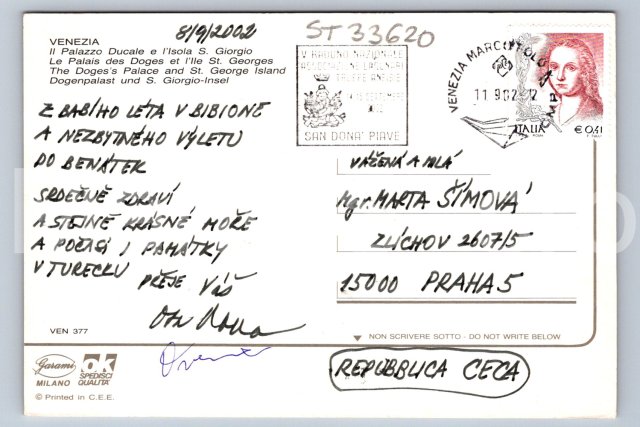 8/9/2002
ST 33620
VENEZIA
Il Palazzo Ducale e l'Isola S. Giorgio
Le Palais des Doges et l'Ile St. Georges
The Doges's Palace and St. George Island
Dogenpalast und S. Giorgio-Insel
V RADUNO NAZIONALE
SAN DONA' PIAVE
VENEZIA MARCO POLO
11 9 02
ITALIA
€ 0,41
Z BABÍHO LÉTA V BIBIONE
A NEZBYTNÉHO VÝLETU
DO BENÁTEK
SRDEČNĚ ZDRAVÍ
A STEJNĚ KRÁSNÉ MOŘE
A POČASÍ I PAMÁTKY
V TURECKU
PŘEJE VÁŠ
VÁŽENÁ A MILÁ
Mgr. MARTA ŠÍMOVÁ
ZLÍCHOV 2607/5
15000 PRAHA 5
VEN 377
NON SCRIVERE SOTTO - DO NOT WRITE BELOW
REPUBBLICA CECA
Garami
MILANO
OK
SPEDISCI
QUALITÀ
© Printed in C.E.E.